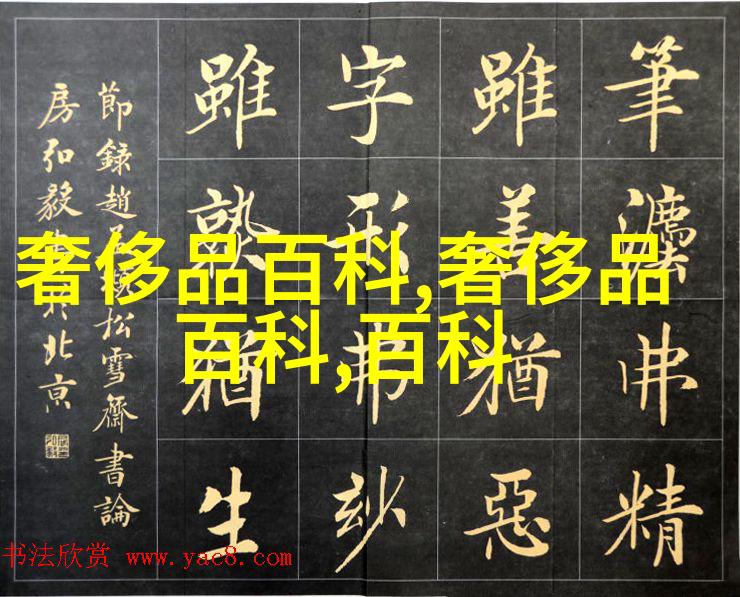 筆灋弗精
雖善猶惡
字形弗妙
雖熟猶生
節錄趙孟頫松雪齋書論
房弘毅書於北亰
奢侈品百科,奢侈品
百科,百科
书法欣赏 www.yac8.com